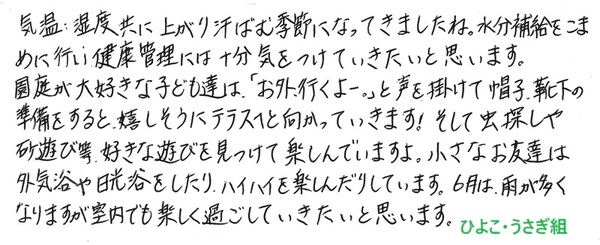 気温・湿度共に上がり汗ばむ季節になってきましたね。水分補給をこま
めに行い健康管理には十分気をつけていきたいと思います。
園庭が大好きな子ども達は、「お外、行くよー。」と声を掛けて帽子、靴下の
準備をすると、嬉しそうにテラスへと向かっていきます!そして虫探しや
砂遊び等、好きな遊びを見つけて楽しんでいますよ。小さなお友達は
外気浴や日光浴をしたり、ハイハイを楽しんだりしています。6月は、雨が多く
なりますが室内でも楽しく過ごしていきたいと思います。ひよこ・うさぎ組